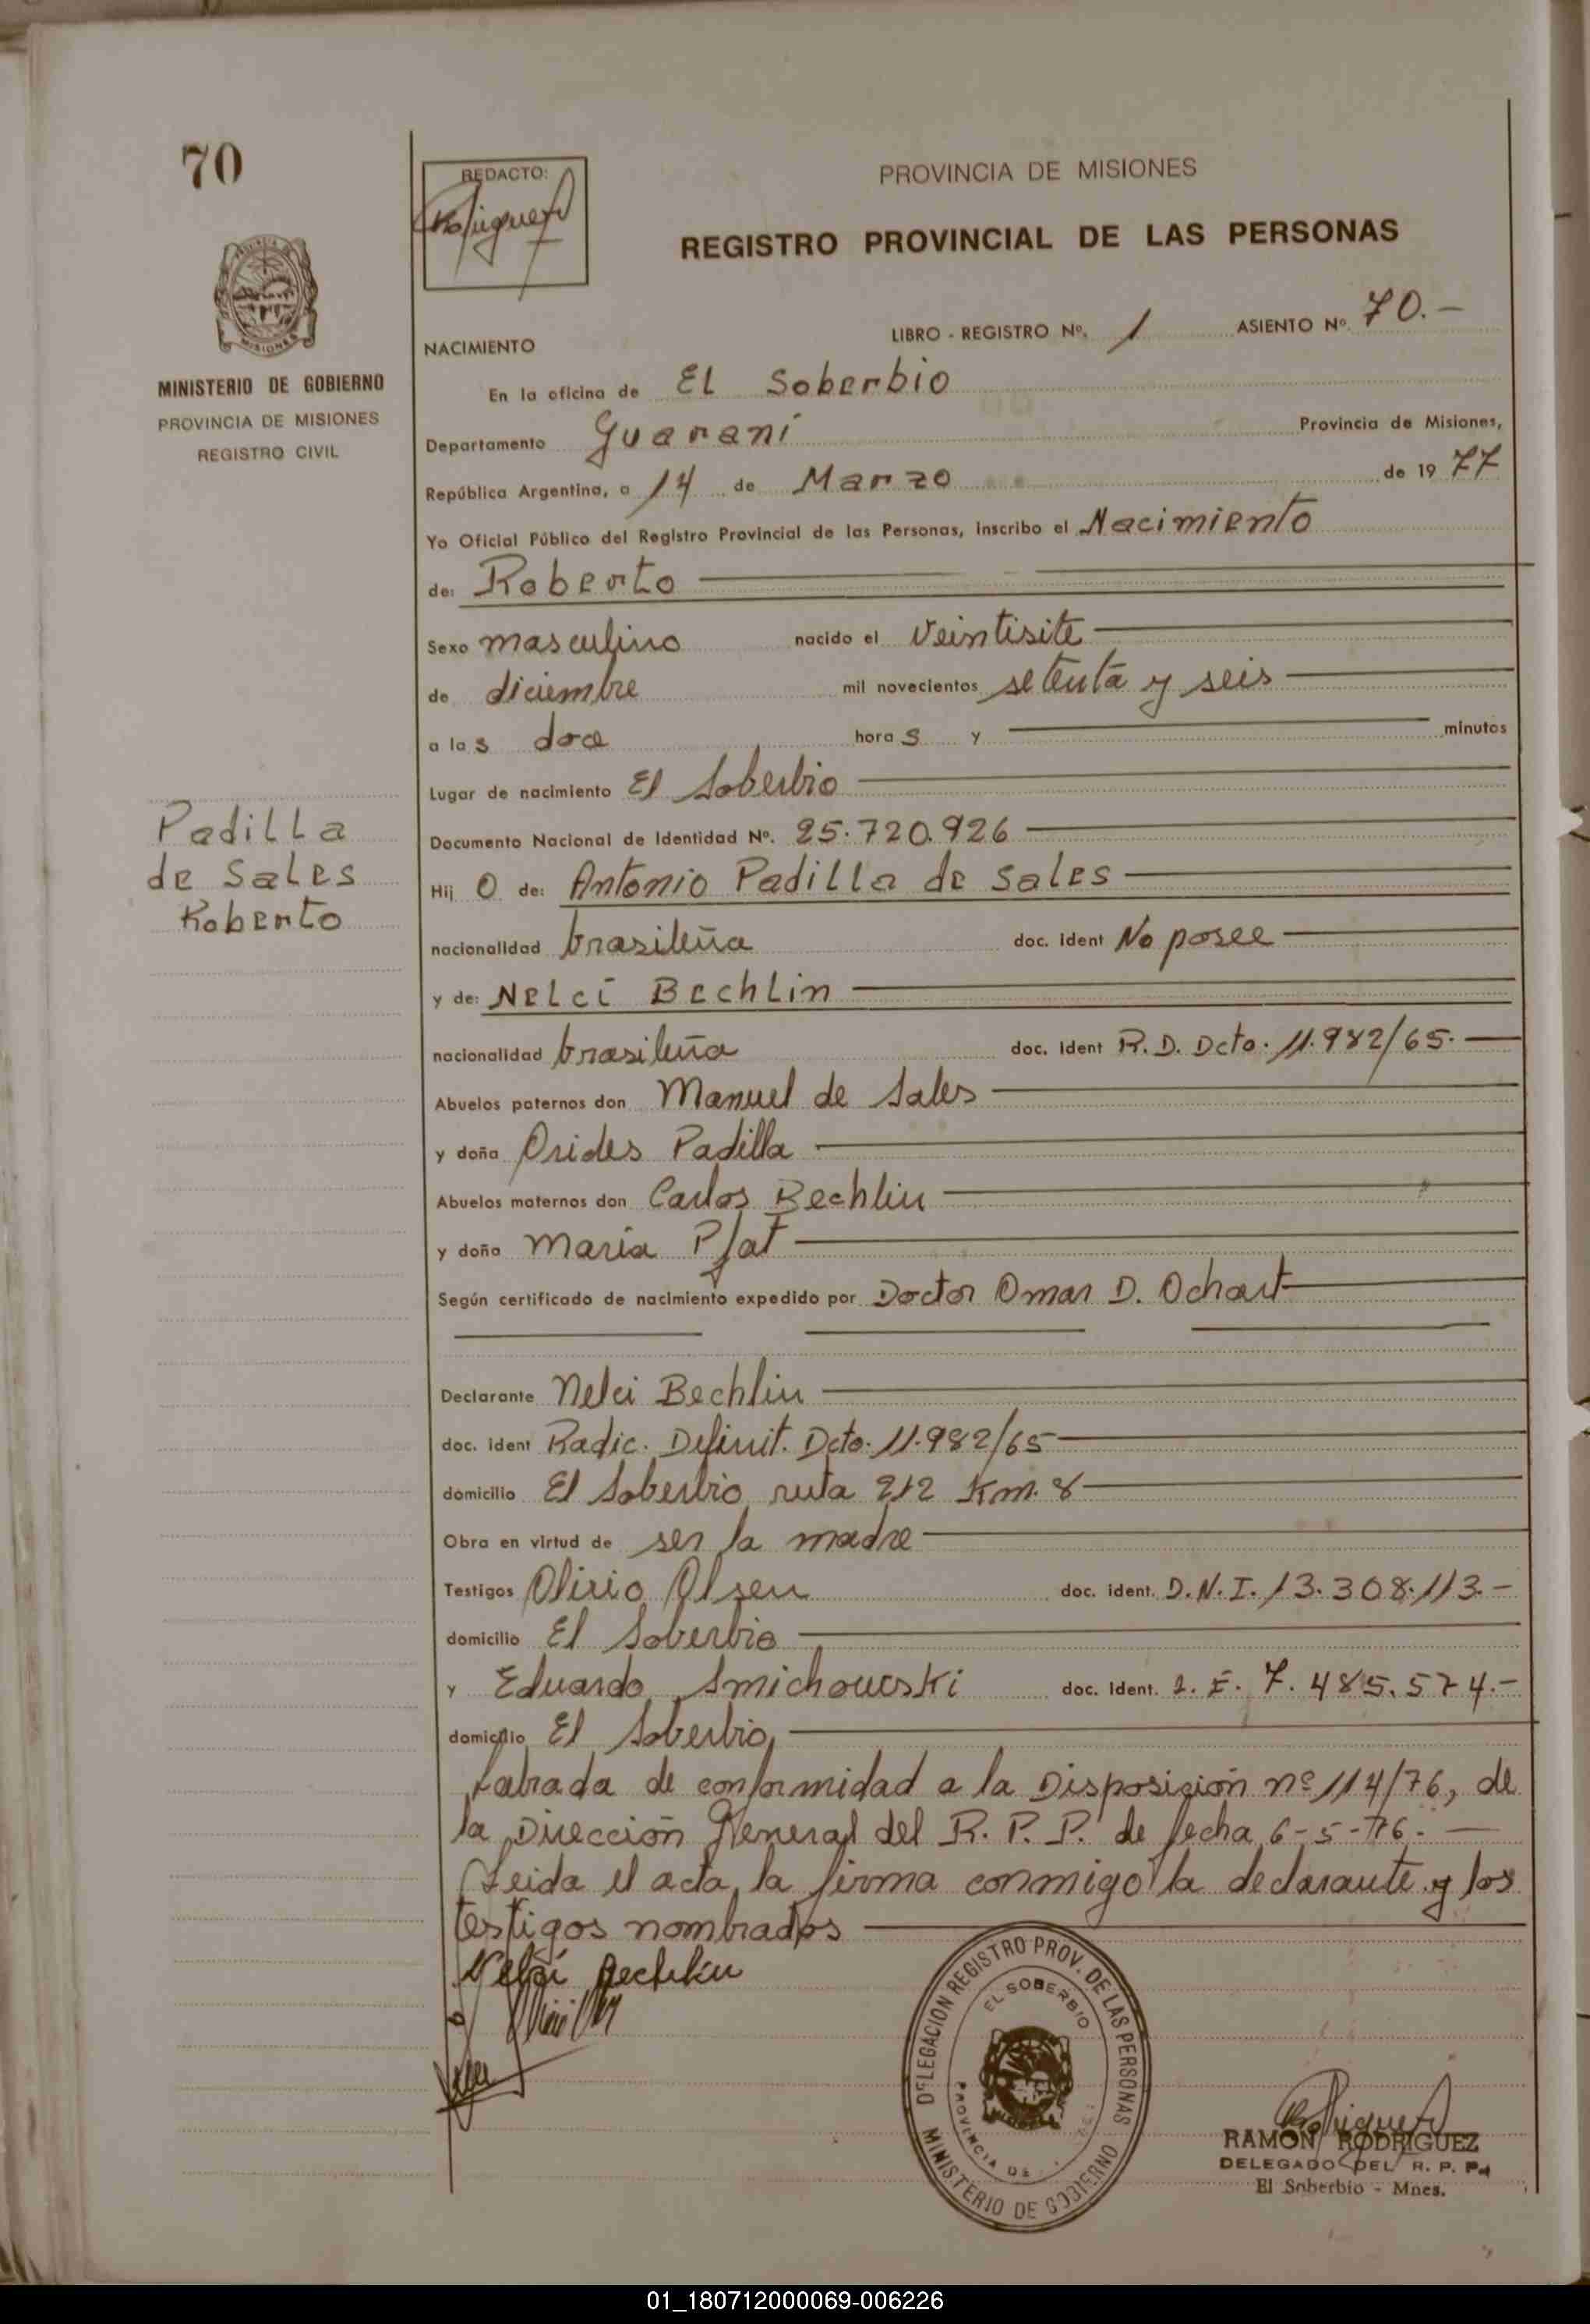 70
REDACTO:
PROVINCIA DE MISIONES
REGISTRO PROVINCIAL DE LAS PERSONAS
MISIONES
MINISTERIO DE GOBIERNO
PROVINCIA DE MISIONES
REGISTRO CIVIL
LIBRO - REGISTRO Nº. 1 ASIENTO Nº. 70.-
NACIMIENTO
En la oficina de El Soberbio
Departamento Guaraní Provincia de Misiones,
República Argentina, a 14 de Marzo de 1977
Yo Oficial Público del Registro Provincial de las Personas, inscribo el Nacimiento
de: Roberto
Sexo masculino nacido el Veintisite
de diciembre mil novecientos setenta y seis
a las doce horas y minutos
Lugar de nacimiento El Soberbio
Padilla
de Sales
Roberto
Documento Nacional de Identidad Nº. 25.720.926
Hijo de: Antonio Padilla de Sales
nacionalidad brasileña doc. ident No posee
y de: Nelci Bechlin
nacionalidad brasileña doc. ident R. D. Dcto. 11.982/65.
Abuelos paternos don Manuel de Sales
y doña Orides Padilla
Abuelos maternos don Carlos Bechlin
y doña María
Según certificado de nacimiento expedido por Doctor Omar D. Ochart
Declarante Nelci Bechlin
doc. ident Radic. Definit. Dcto. 11.982/65
domicilio El Soberbio ruta 212 Km. 8
Obra en virtud de ser la madre
Testigos Olirio Olsen doc. ident. D.N.I. 13.308.113.-
domicilio El Soberbio
y Eduardo Smichowski doc. ident. L. E. 7.485.574.-
domicilio El Soberbio,
Labrada de conformidad a la Disposición nº 114/76, de
la Dirección General del R. P. P. de fecha 6-5-76.
Leida el acta, la firma conmigo la declarante y los
testigos nombrados
Nelci Bechlin
DELEGACION REGISTRO PROV. DE LAS PERSONAS
EL SOBERBIO
PROVINCIA DE
MINISTERIO DE GOBIERNO
RAMON RODRIGUEZ
DELEGADO DEL R. P. P.
El Soberbio - Mnes.
01_180712000069-006226